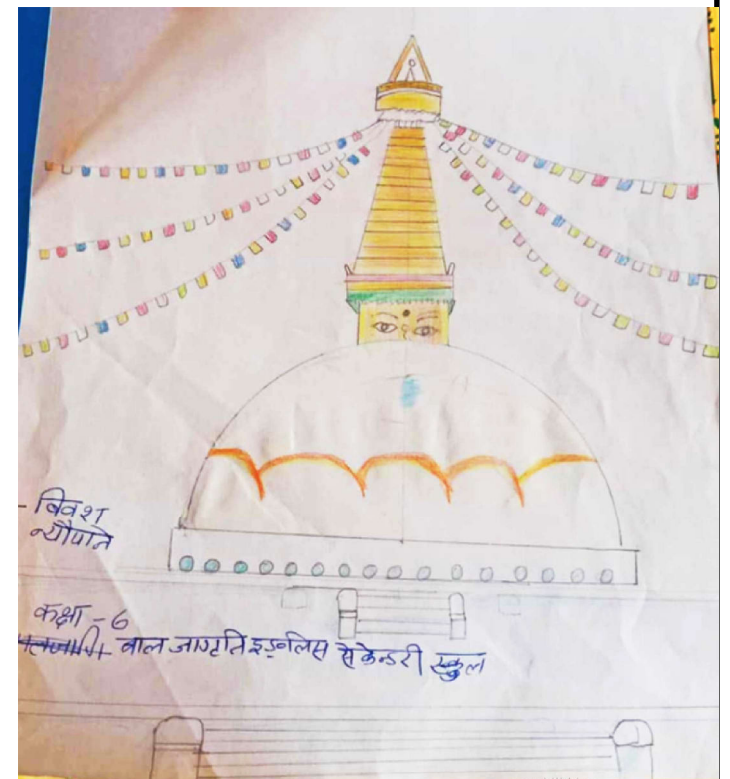 - विवश
न्यौपाने
कक्षा - 6
बाल जागृति इङ्गलिस सेकेन्डरी स्कुल